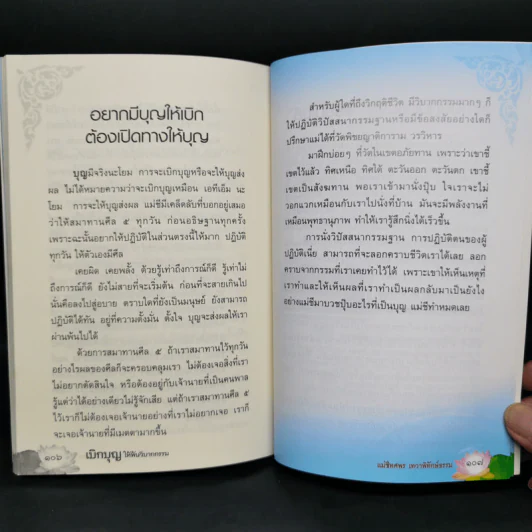 อยากมีบุญให้เบิก
ต้องเปิดทางให้บุญ
บุญมีจริงนะโยม การจะเบิกบุญหรือจะให้บุญส่ง
ผล ไม่ได้หมายความว่าจะเบิกบุญเหมือน เอทีเอ็ม นะ
โยม การจะให้บุญส่งผล แม่ชีมีเคล็ดลับที่บอกอยู่เสมอ
ว่าให้สมาทานศีล ๕ ทุกวัน ก่อนอธิษฐานทุกครั้ง
เพราะฉะนั้นอยากให้ปฏิบัติในส่วนตรงนี้ให้มาก ปฏิบัติ
ทุกวัน ให้ตัวเองมีศีล
เคยผิด เคยพลั้ง ด้วยรู้เท่าถึงการณ์ก็ดี รู้เท่าไม่
ถึงการณ์ก็ดี ยังไม่สายที่จะเริ่มต้น ก่อนที่จะสายเกินไป
นั่นคือลงไปสู่อบาย ตราบใดที่ยังเป็นมนุษย์ ยังสามารถ
ปฏิบัติได้ทัน อยู่ที่ความตั้งมั่น ตั้งใจ บุญจะส่งผลให้เรา
ผ่านพ้นไปได้
ด้วยการสมาทานศีล ๕ ถ้าเราสมาทานไว้ทุกวัน
อย่างไรผลของศีลก็จะครอบคลุมเรา ไม่ต้องเจอสิ่งที่เรา
ไม่อยากตัดสินใจ หรือต้องอยู่กับเจ้านายที่เป็นคนพาล
รู้แต่ว่าได้อย่างเดียวไม่รู้จักเสีย แต่ถ้าเราสมาทานศีล ๕
ไว้เราก็ไม่ต้องเจอเจ้านายอย่างที่เราไม่อยากเจอ เราก็
จะเจอเจ้านายที่มีเมตตามากขึ้น
๑๐๖ เบิกบุญ ให้พ้นวิบากกรรม
สำหรับผู้ใดที่ถึงวิกฤติชีวิต มีวิบากกรรมมากๆ ก็
ให้ปฏิบัติวิปัสสนากรรมฐานหรือมีข้อสงสัยอย่างใดก็
ปรึกษาแม่ได้ที่วัดพิชยญาติการาม วรวิหาร
มาฝึกบ่อยๆ ที่วัดในเขตอภัยทาน เพราะว่าเขาชี้
เขตไว้แล้ว ทิศเหนือ ทิศใต้ ตะวันออก ตะวันตก เขาชี้
เขตเป็นสังฆทาน พอเราเข้ามานั่งปุ๊บ ใจเราจะไม่
วอกแวกเหมือนกับเราไปนั่งที่บ้าน มันจะมีพลังงานที่
เหมือนพุทธานุภาพ ทำให้เรารู้สึกนิ่งได้เร็วขึ้น
การนั่งวิปัสสนากรรมฐาน การปฏิบัติตนของผู้
ปฏิบัติเนี่ย สามารถที่จะลอกคราบชีวิตเราได้เลย ลอก
คราบจากกรรมที่เราเคยทำไว้ได้ เพราะเราเห็นเหตุที่
เราทำและให้เห็นผลที่เราทำเป็นผลกลับมาเป็นยังไง
อย่างแม่ชีมาบวชปุ๊บอะไรที่เป็นบุญ แม่ชีทำหมดเลย
แม่ชีทศพร ๑๐๗